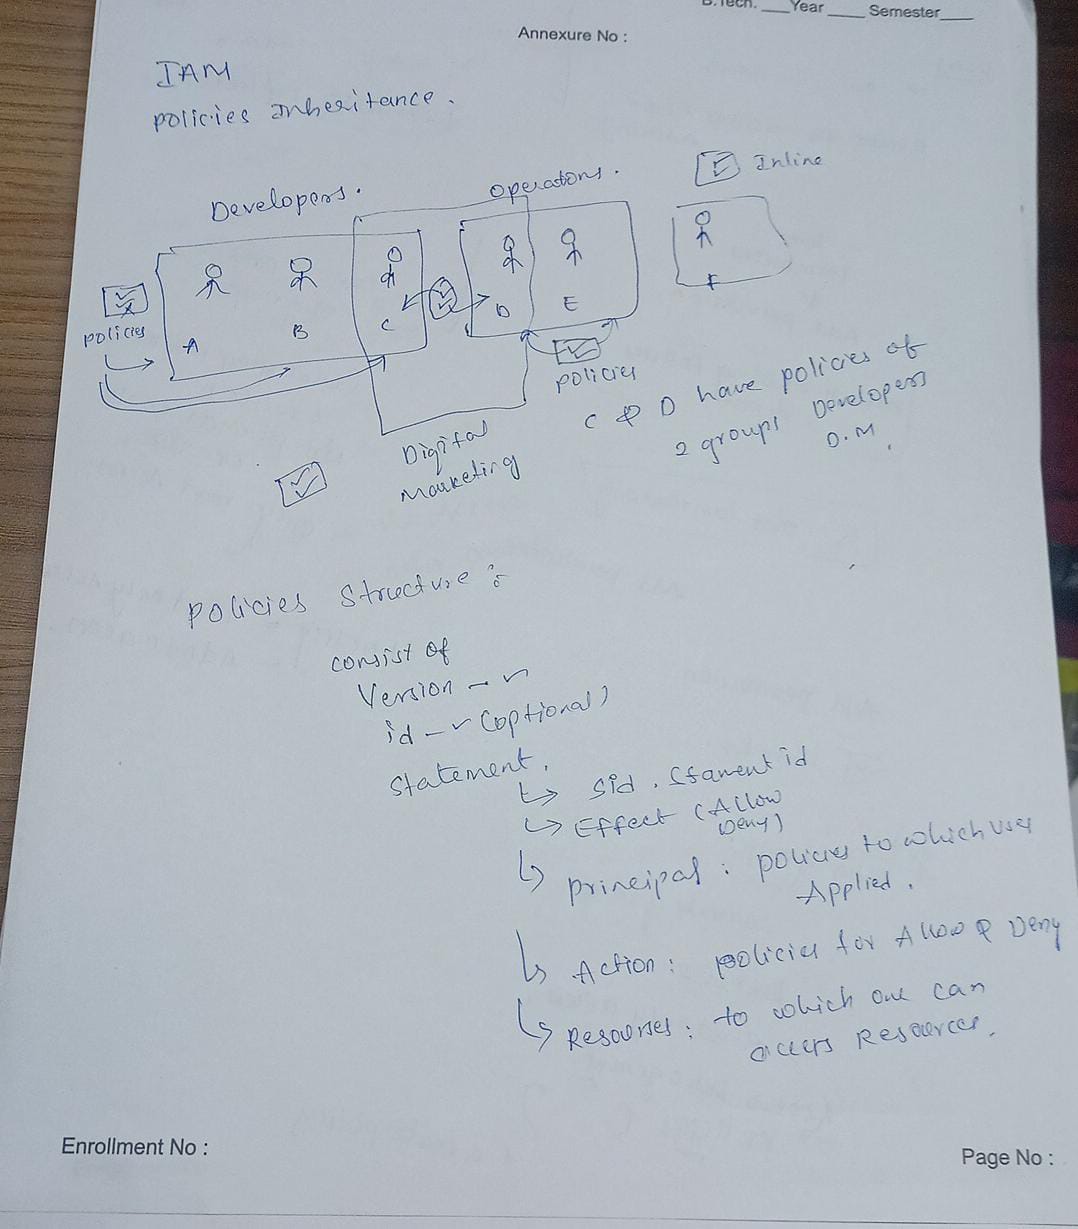 B.Tech. ___ Year ____ Semester___
Annexure No :
IAM
policies Inheritance.
Inline
Developers.
Operators.
policies
A
B
C
D
E
F
policies
C & D have policies of
2 groups Developers
D.M.
Digital
Marketing
policies Structure :
consist of
Version -
id - (optional)
Statement.
Sid. Stament id
Effect (Allow
Deny)
principal : policies to which user
Applied.
Action : policies for Allow & Deny
Resourses : to which one can
access Resources.
Enrollment No :
Page No :